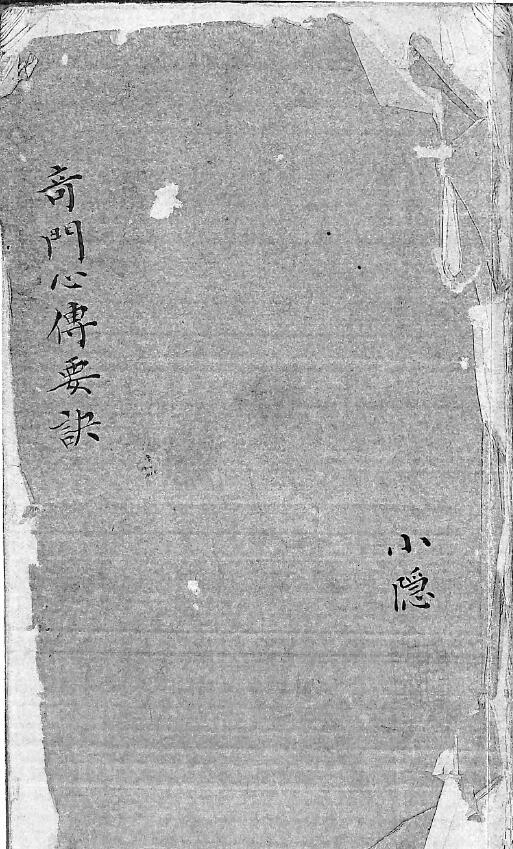 奇門心傳要訣
小隠